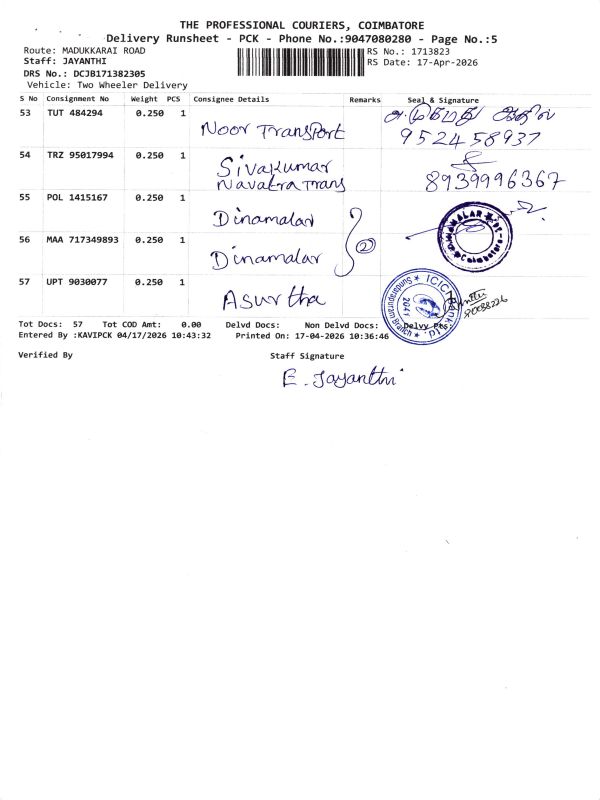 THE PROFESSIONAL COURIERS, COIMBATORE
Delivery Runsheet - PCK - Phone No.:9047080280 - Page No.:5
Route: MADUKKARAI ROAD RS No.: 1713823
Staff: JAYANTHI RS Date: 17-Apr-2026
DRS No.: DCJB171382305
Vehicle: Two Wheeler Delivery
S No Consignment No Weight PCS Consignee Details Remarks Seal & Signature
53 TUT 484294 0.250 1 Noor Transport
9524458937
54 TRZ 95017994 0.250 1 Sivakumar
Navatra Trans 8939996367
55 POL 1415167 0.250 1 Dinamalar
2
56 MAA 717349893 0.250 1 Dinamalar
57 UPT 9030077 0.250 1 Asurtha
ICICI Bank Ltd. Sundarapuram Branch 2041
Tot Docs: 57 Tot COD Amt: 0.00 Delvd Docs: Non Delvd Docs: Delvy Pts:
Entered By :KAVIPCK 04/17/2026 10:43:32 Printed On: 17-04-2026 10:36:46
Verified By Staff Signature
E. Jayanthi